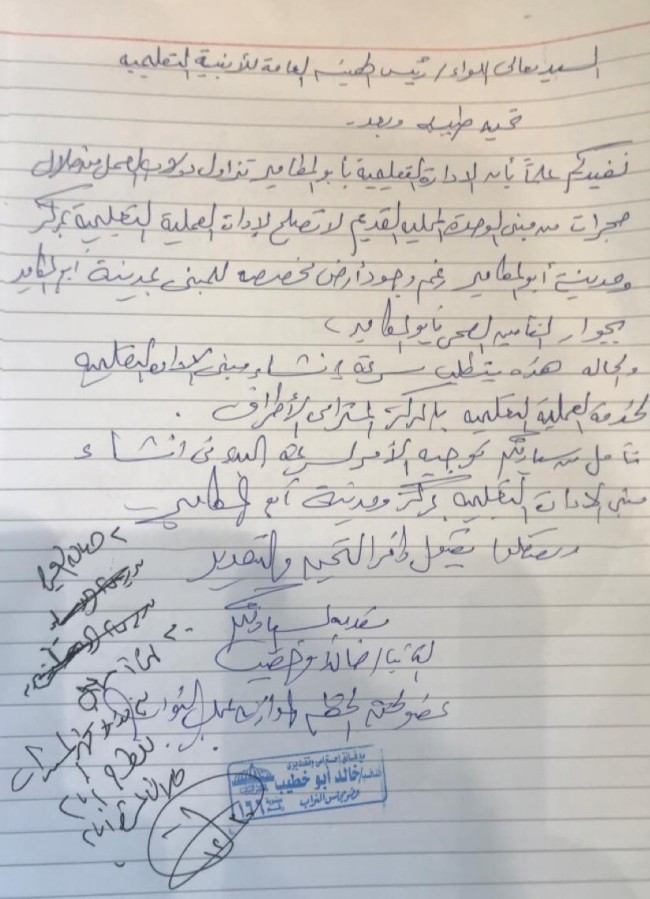 السيد معالي اللواء / رئيس الهيئة العامة للأبنية التعليمية
تحية طيبة وبعد -
نفيدكم علماً بأن الإدارة التعليمية بأبو المطامير تزاول دولاب العمل من خلال
حجرات من مبنى الوحدة المحلية القديم لا تصلح لإدارة العملية التعليمية بمركز
ومدينة أبو المطامير رغم وجود أرض مخصصه للمبنى بمدينة أبو المطامير
بجوار التأمين الصحي بأبو المطامير ،
والحاله هذه يتطلب سرعة إنشاء مبنى الإدارة التعليمية
لخدمة العملية التعليمية بالمركز المترامي الأطراف .
نأمل من سيادتكم توجيه الأمر لسرعة البدء في انشاء
مبنى الإدارة التعليمية بمركز ومدينة أبو المطامير
وتفضلوا بقبول وافر التحية والتقدير
مقدمه لسيادتكم
النائب / خالد أبو خطيب
عضو لجنة الخطة والموازنة بمجلس النواب
خالد أبو خطيب
عضو مجلس النواب
١٦٦